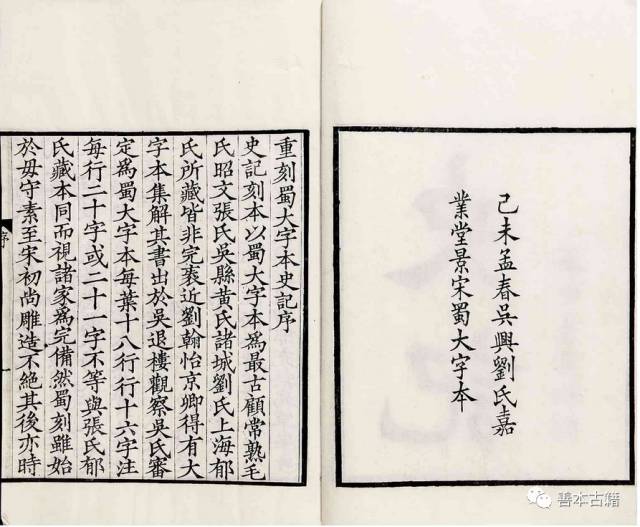 己未孟春吳興劉氏嘉
業堂景宋蜀大字本
重刻蜀大字本史記序
史記刻本以蜀大字本爲最古顧常熟毛
氏昭文張氏吳縣黃氏諸城劉氏上海郁
氏所藏皆非完袠近劉翰怡京卿得有大
字本集解其書出於吳退樓觀察吳氏審
定爲蜀大字本每葉十八行行十六字注
每行二十字或二十一字不等與張氏郁
氏藏本同而視諸家爲完備然蜀刻雖始
於毋守素至宋初尚雕造不絕其後亦時
序
善本古籍